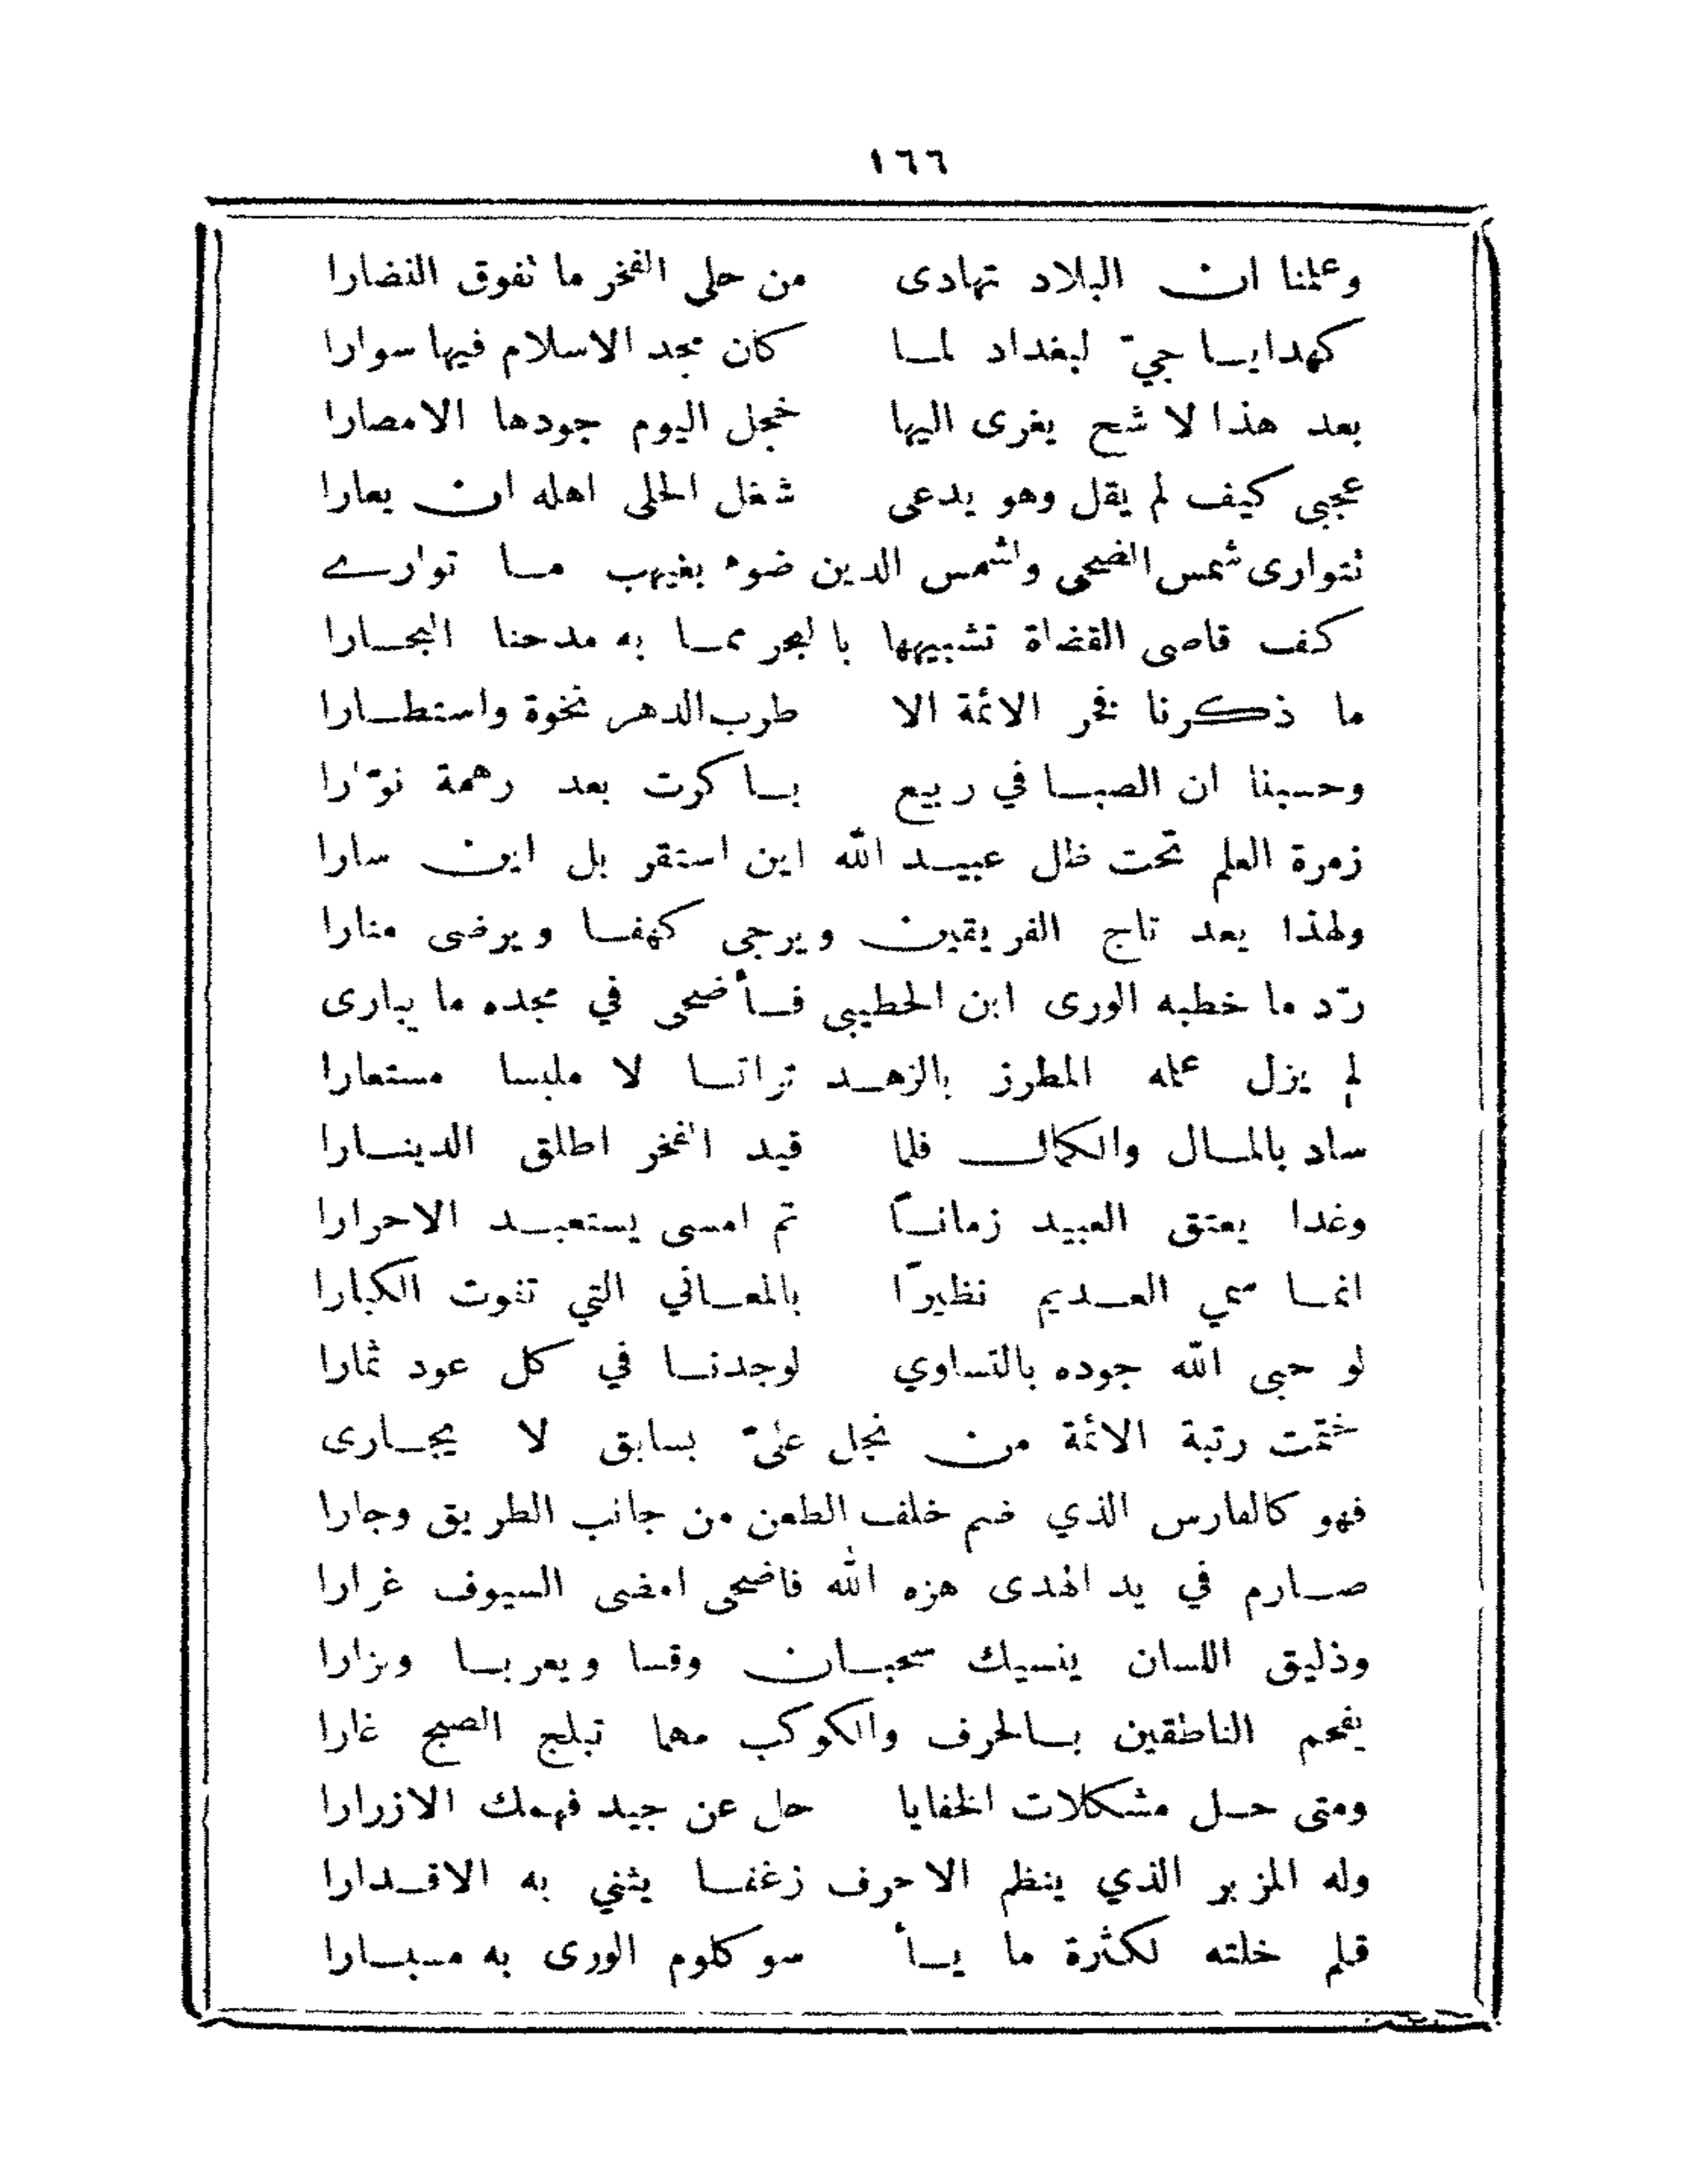 ١٦٦
وعلمنا ان البلاد تهادى من حلى الفخر ما تفوق النضارا
كهدايا جيّ لبغداد لما كان مجد الاسلام فيها سوارا
بعد هذا لا شح يغرى اليها خجل اليوم جودها الامصارا
عجبي كيف لم يقل وهو يدعى شغل الحلى اهله ان يعارا
تتوارى شمس الضحى ولشمس الدين ضوء بغيهب ما توارى
كف قاصى القضاة تشبيهها بالبحر مما به مدحنا البحارا
ما ذكرنا فخر الائمة الا طرب الدهر نخوة واستطارا
وحسبنا ان الصبا في ربيع باكرت بعد رهمة نوّارا
زمرة العلم تحت ظل عبيد الله اين استقر بل اين سارا
ولهذا يعد تاج الفريقين ويرجى كهفا ويرضى منارا
ردّ ما خطبه الورى ابن الخطيبي فأضحى في مجده ما يبارى
لم يزل علمه المطرز بالزهد تراثا لا ملبسا مستعارا
ساد بالمال والكمال فلما قيد الفخر اطلق الدينارا
وغدا يعتق العبيد زماناً ثم امسى يستعبد الاحرارا
انما سمي العديم نظيرًا بالمعاني التي تفوت الكبارا
لو حبى الله جوده بالتساوي لوجدنا في كل عود ثمارا
ختمت رتبة الائمة من نجل عليّ بسابق لا يجارى
فهو كالفارس الذي ضم خلف الطعن من جانب الطريق وجارا
صارم في يد الهدى هزه الله فاضحى امضى السيوف غرارا
وذليق اللسان ينسيك سحبان وقسا ويعربا ونزارا
يفحم الناطقين بالحرف والكوكب مهما تبلج الصبح غارا
ومتى حل مشكلات الخفايا حل عن جيد فهمك الازرارا
وله المزبر الذي ينظم الاحرف زغفا يثني به الاقدارا
قلم خلته لكثرة ما يأ سو كلوم الورى به مسبارا